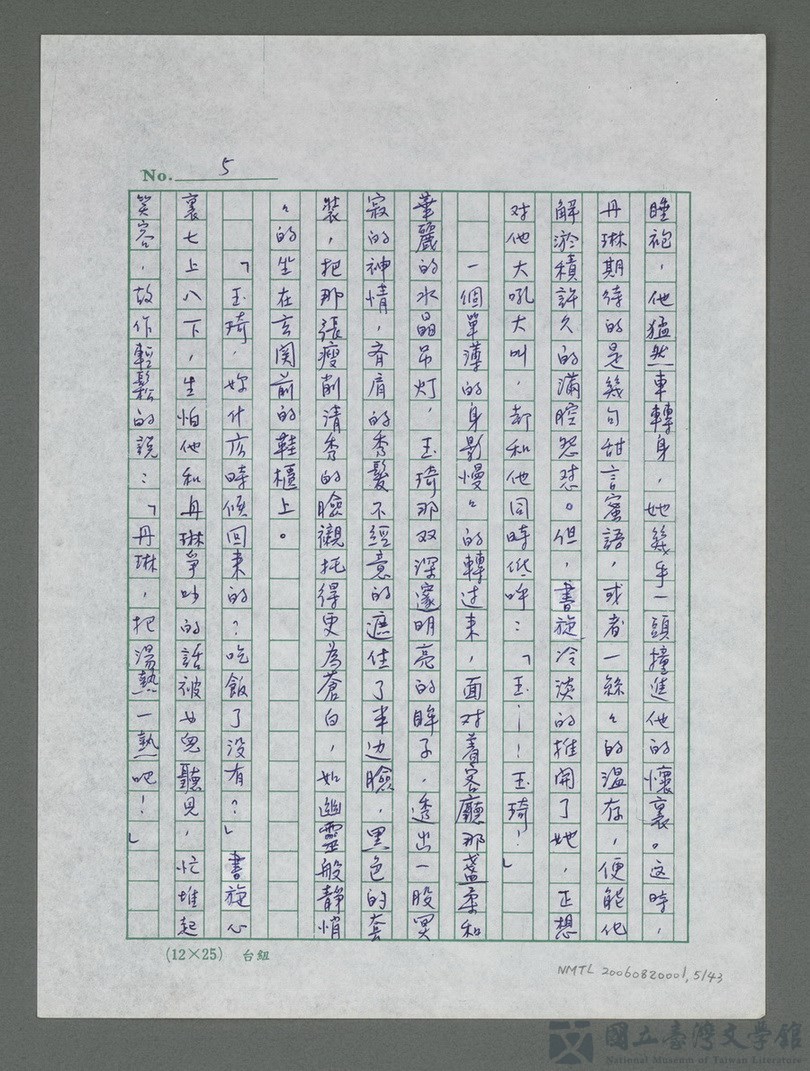 No. 5
睡袍，他猛然車轉身，她幾乎一頭撞進他的懷裏。這時，
丹琳期待的是幾句甜言蜜語，或者一絲々的溫存，便能化
解淤積許久的滿腔怨懟。但，書旋冷淡的推開了她，正想
对他大吼大叫，却和他同時低呼：「玉——！玉琦！」
一個單薄的身影慢々的轉过来，面对着客廳那盞柔和
華麗的水晶吊灯，玉琦那双深邃明亮的眸子，透出一股冥
寂的神情，齊肩的秀髮不經意的遮住了半边臉，黑色的套
裝，把那張瘦削清秀的臉襯托得更為蒼白，如幽靈般靜悄
々的坐在玄関前的鞋櫃上。
「玉琦，妳什広時候回来的？吃飯了没有？」書旋心
裏七上八下，生怕他和丹琳爭吵的話被女兒聽見，忙堆起
笑容，故作輕鬆的説：「丹琳，把湯熱一熱吧！」
(12×25) 台紐
NMTL 20060820001, 5/43
國立臺灣文學館
National Museum of Taiwan Literature